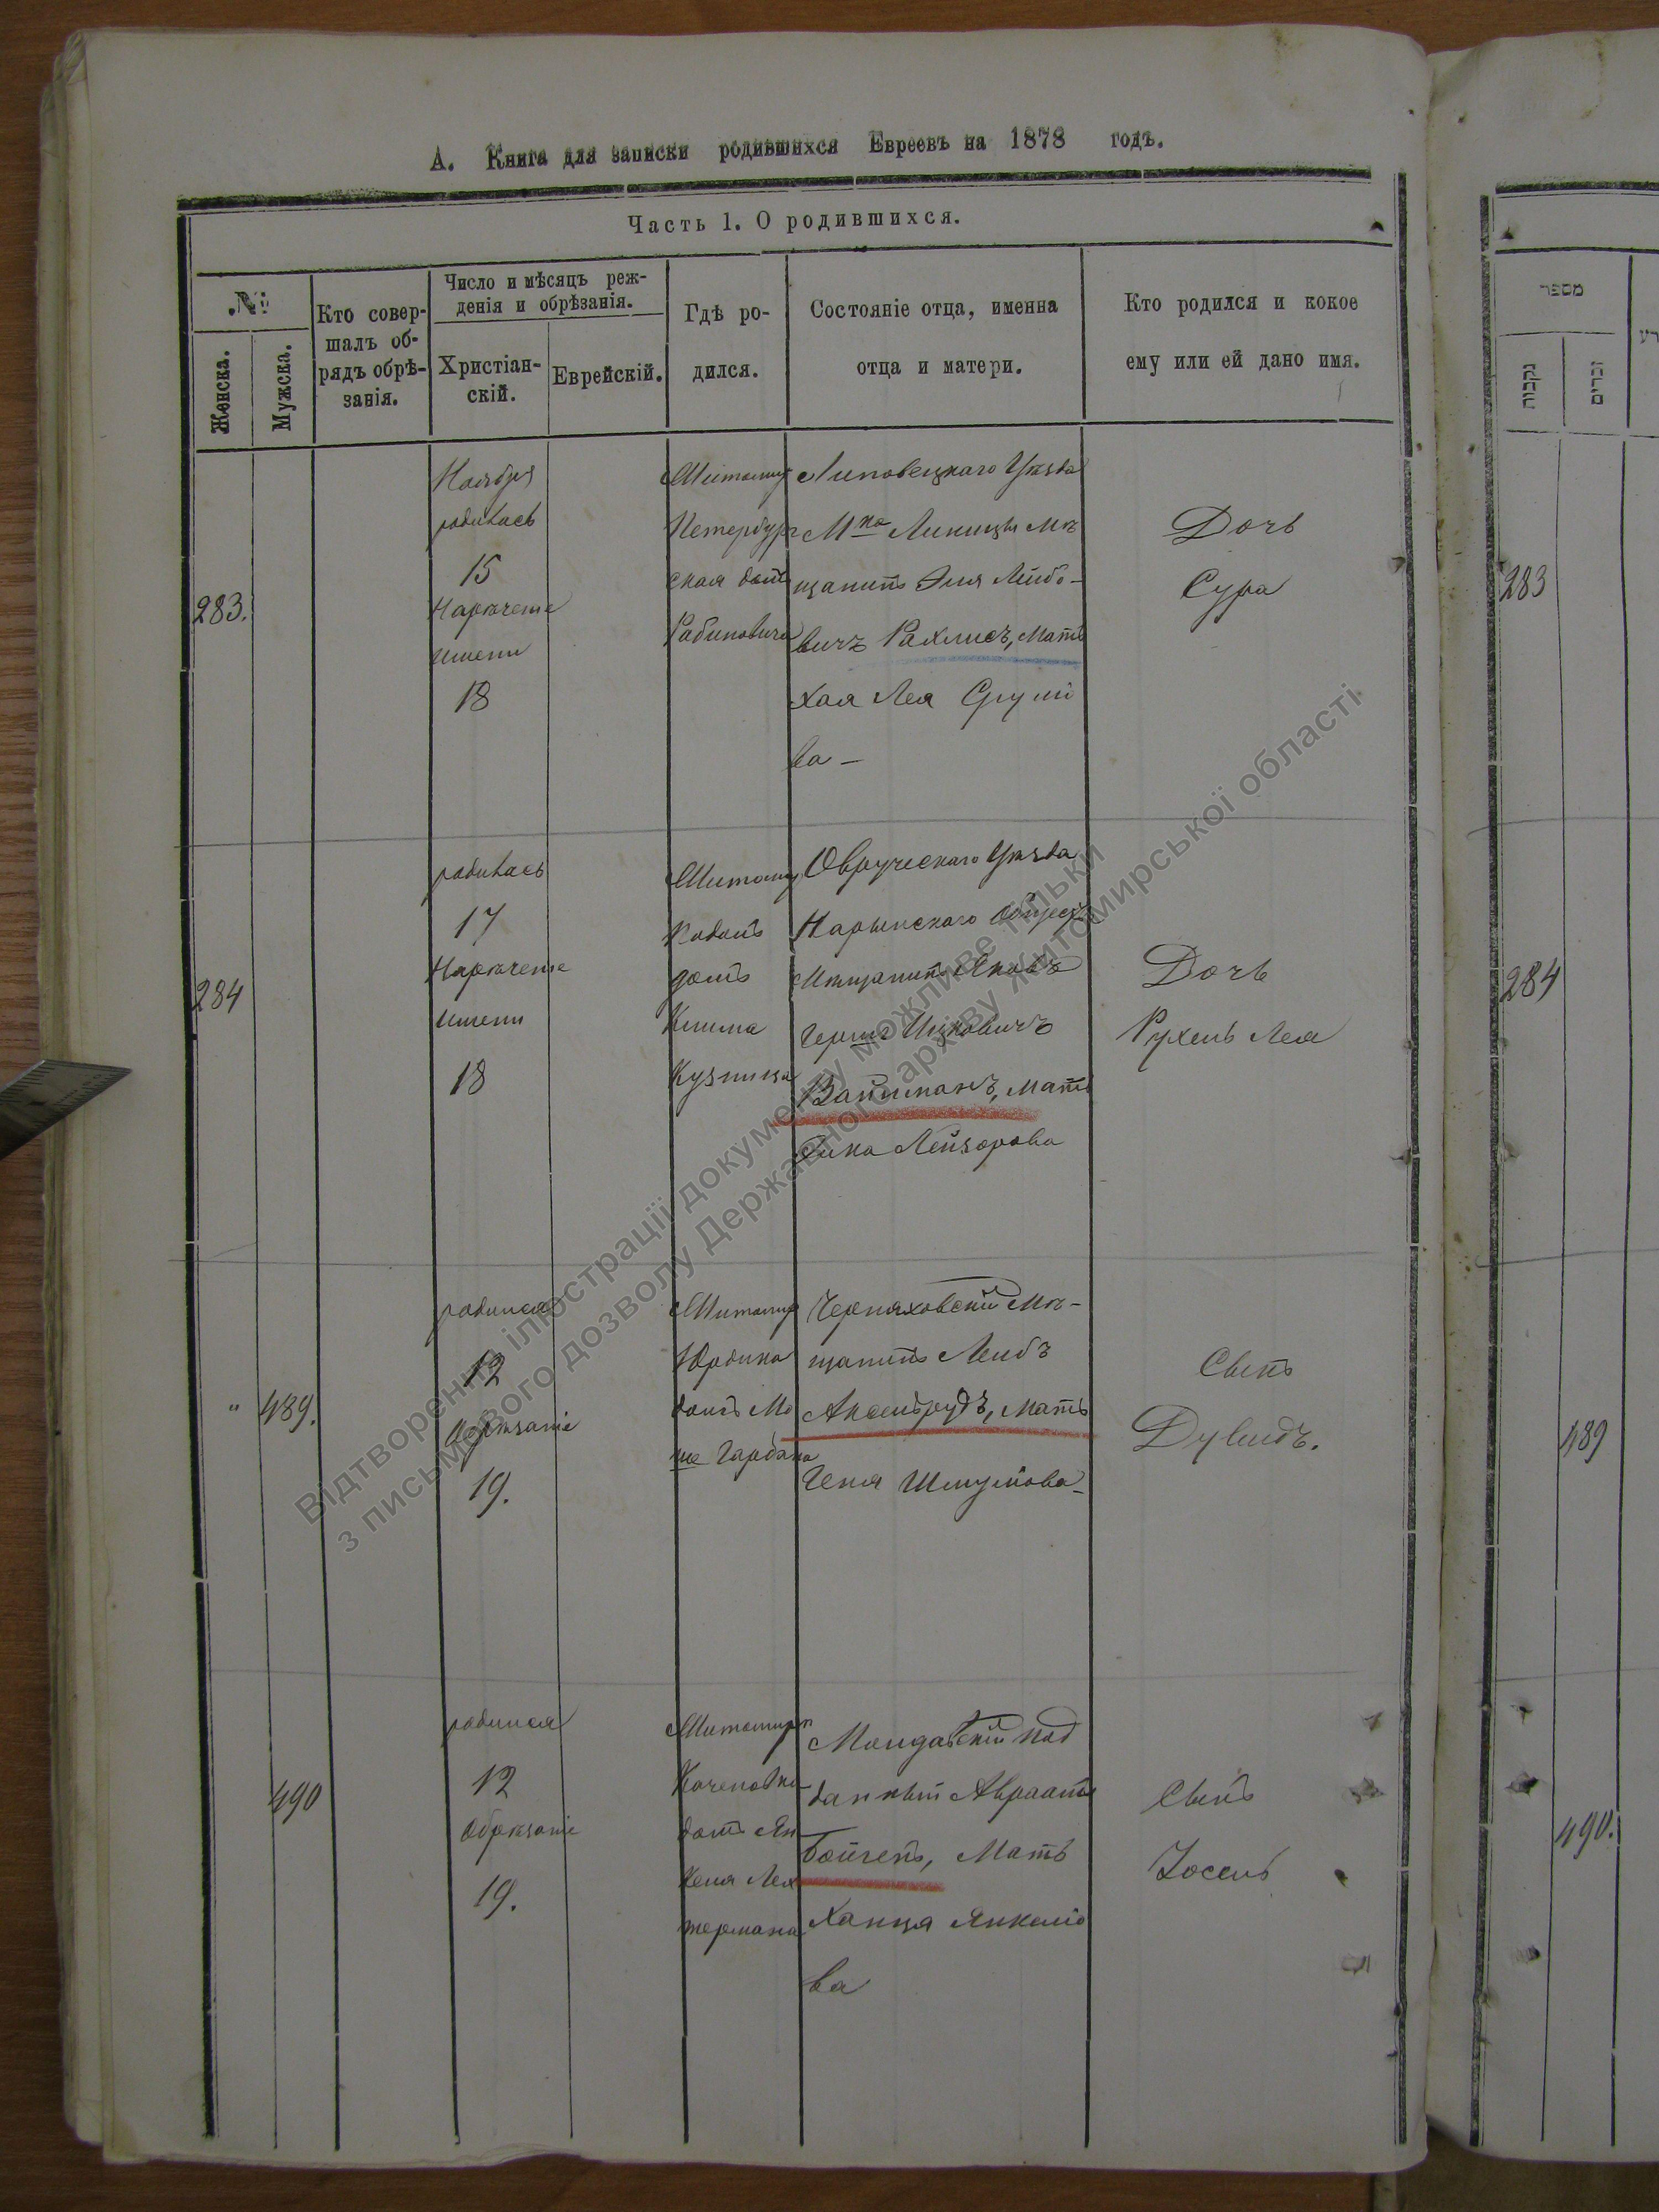 А. Книга для записки родившихся Евреевъ на 1878 годъ.
Часть 1. О родившихся.
№
Женска.
Мужска.
Кто совер-
шалъ об-
рядъ обрѣ-
занія.
Число и мѣсяцъ реж-
денія и обрѣзанія.
Христіан-
скій.
Еврейскій.
Гдѣ ро-
дился.
Состояніе отца, именна
отца и матери.
Кто родился и кокое
ему или ей дано имя.
283.
Ноября
родилась
15
Нареченіе
имени
18
Житомир
Петербург
ская домъ
Рабиновича
Липовецкаго Уѣзда
Мка Линицы Мѣ
щанинъ Эля Лейбо-
вичъ Рахлисъ, Мать
Хая Лея Срулі
ва -
Дочь
Сура
284
родилась
17
Нареченіе
имени
18
Житомир
домъ
Кузница
Овручскаго Уѣзда
Нарынскаго Общес
Мѣщанинъ Яковъ
Гершъ Ицковичъ
Вайнманъ, Мать
Лейзорова
Дочь
Рухель Лея
" 489.
родился
12
Обрѣзаніе
19.
Житомир
домъ Мо
ше
Черняховскій Мѣ-
щанинъ Лейбъ
Аксельрудъ, Мать
Геня Шмулiова
Сынъ
Дувидъ.
490
родился
12
Обрѣзаніе
19.
Житомиръ
домъ Ян
келя
Молдавскій под
данный Авраамъ
Бойченъ, Мать
Ханця Янкеліо
ва
Сынъ
Іосель
מספר
נקבות
זכרים
283
284
489
490.
Відтворення ілюстрації документу можливе тільки
з письмового дозволу Державного архіву Житомирської області